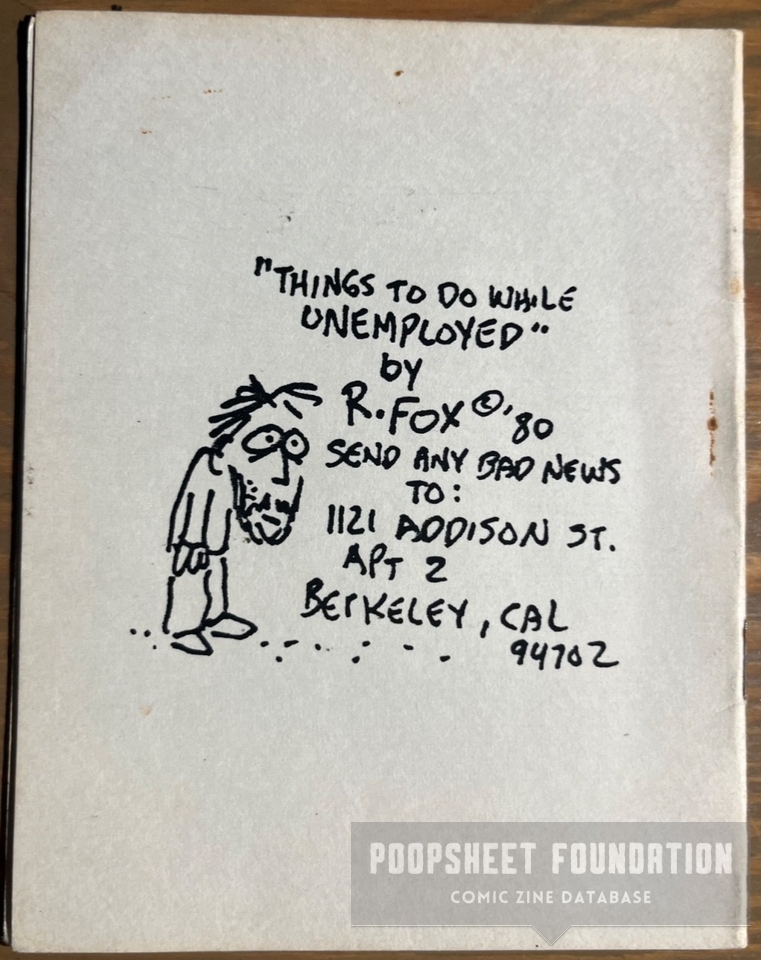 "THINGS TO DO WHILE
UNEMPLOYED"
by
R. FOX © '80
SEND ANY BAD NEWS
TO:
1121 ADDISON ST.
APT 2
BERKELEY, CAL
94702
POOPSHEET FOUNDATION
COMIC ZINE DATABASE